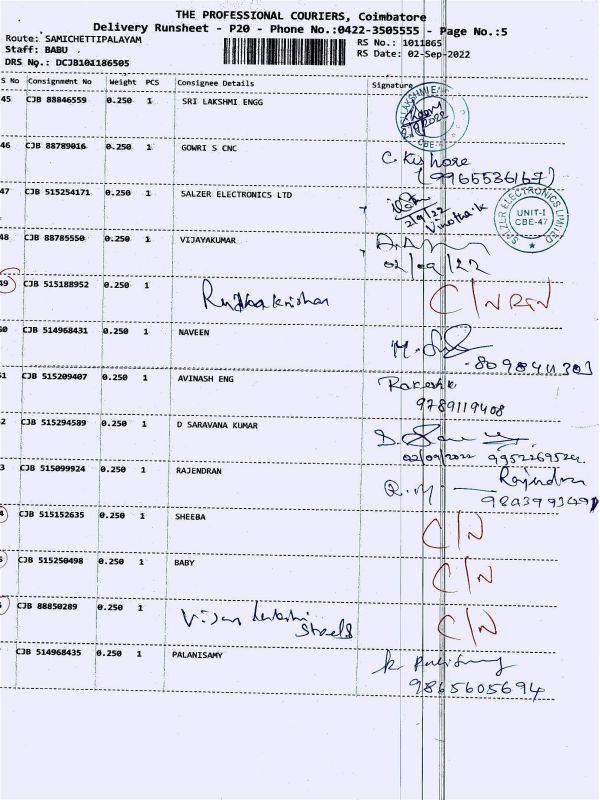 THE PROFESSIONAL COURIERS, Coimbatore
Delivery Runsheet - P20 - Phone No.:0422-3505555 - Page No.:5
Route: SAMICHETTIPALAYAM
RS No.: 1011865
Staff: BABU
RS Date: 02-Sep-2022
DRS No.: DCJB101186505
S No Consignment No Weight PCS Consignee Details Signature
45 CJB 88846559 0.250 1 SRI LAKSHMI ENGG
2/9/2022
CBE-47
46 CJB 88789016 0.250 1 GOWRI S CNC
C. Kishore
(9965536167)
47 CJB 515254171 0.250 1 SALZER ELECTRONICS LTD
2/9/22
Vinotha.k
SALZER ELECTRONICS LIMITED
UNIT-I
CBE-47
48 CJB 88785550 0.250 1 VIJAYAKUMAR
02/09/22
49 CJB 515188952 0.250 1
C/N RTN
50 CJB 514968431 0.250 1 NAVEEN
8098411303
51 CJB 515209407 0.250 1 AVINASH ENG
Rakesh
9789119408
2 CJB 515294589 0.250 1 D SARAVANA KUMAR
02/09/2022
3 CJB 515099924 0.250 1 RAJENDRAN
Rajendran
4 CJB 515152635 0.250 1 SHEEBA
C/N
5 CJB 515250498 0.250 1 BABY
C/N
CJB 88850289 0.250 1
Steels
C/N
CJB 514968435 0.250 1 PALANISAMY
9865605694